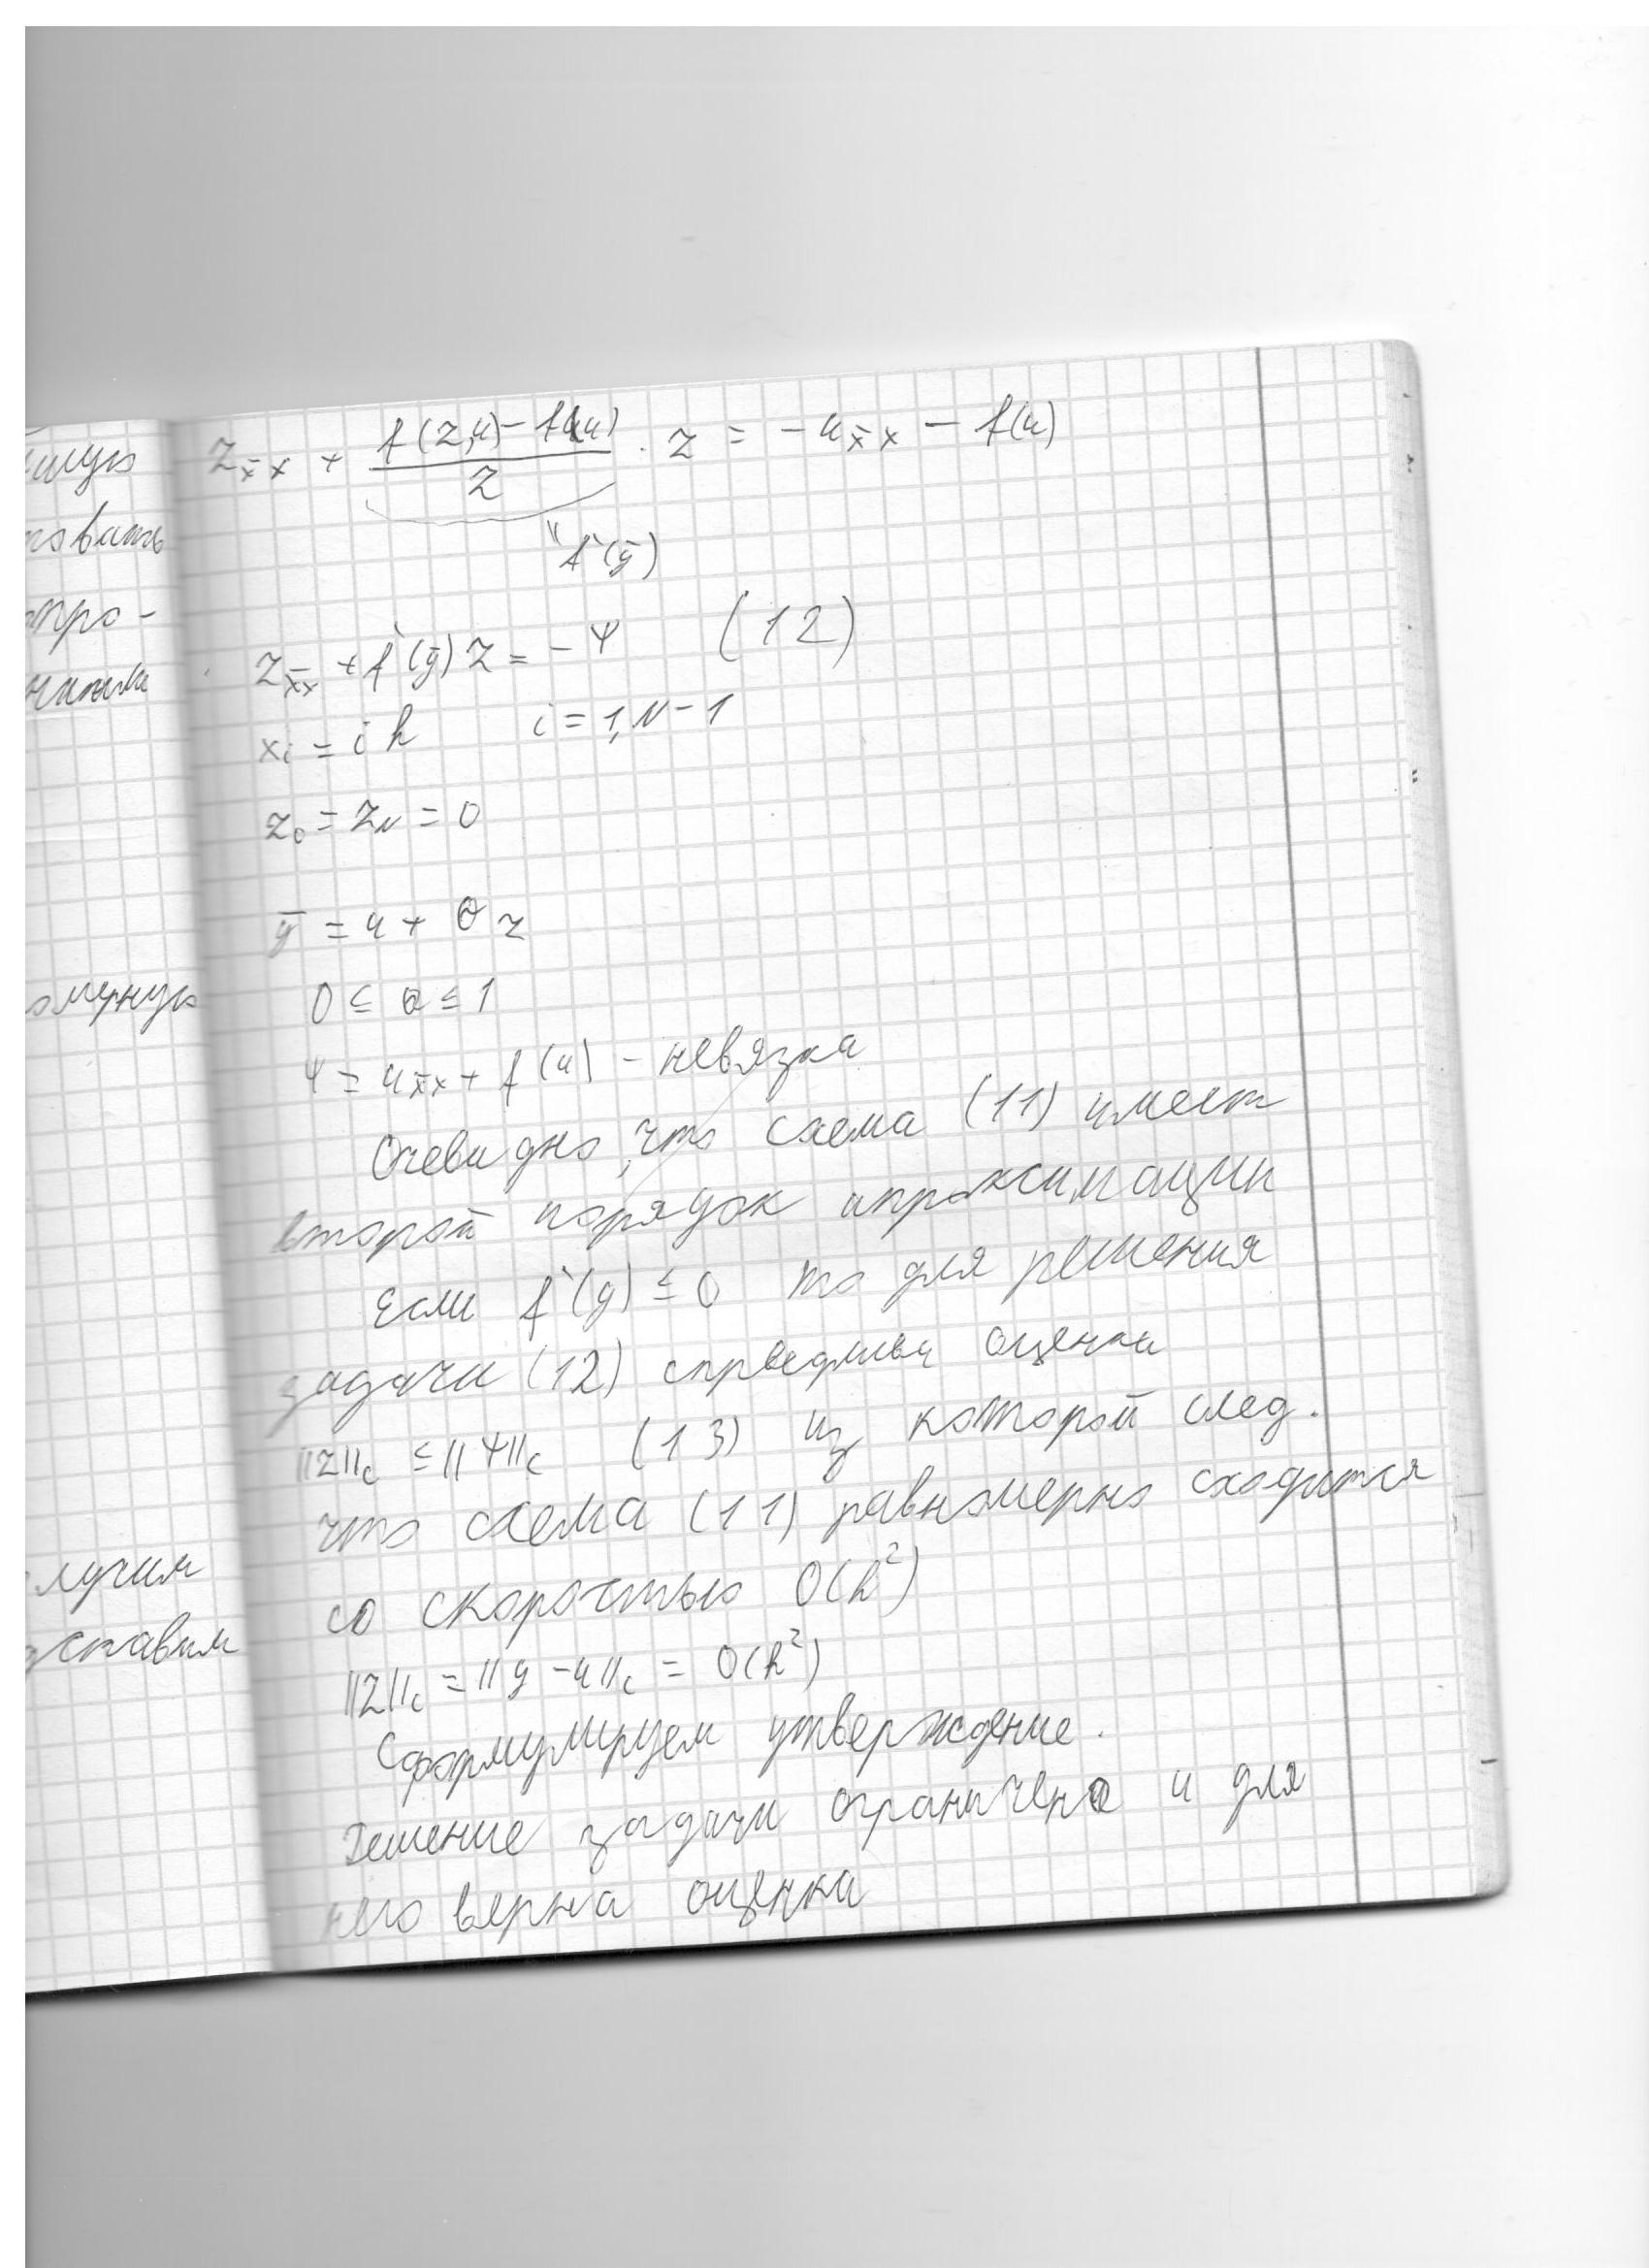 овать
опро-
омерную
лучим
дставим
z_x̄x + (f(z,u) - f(u))/z · z = -u_x̄x - f(u)
" f'(ȳ)
z_x̄x + f'(ȳ) z = -ψ (12)
x_i = i h i = 1, N-1
z_0 = z_N = 0
ȳ = u + θ z
0 ≤ θ ≤ 1
ψ = u_x̄x + f(u) - невязка
Очевидно, что схема (11) имеет
второй порядок апроксимации
Если f'(y) ≤ 0 то для решения
задачи (12) справедлива оценка
||z||_c ≤ ||ψ||_c (13) из которой след.
что схема (11) равномерно сходится
со скоростью O(h²)
||z||_c = ||y - u||_c = O(h²)
Сформулируем утверждение.
Решение задачи ограничено и для
него верна оценка